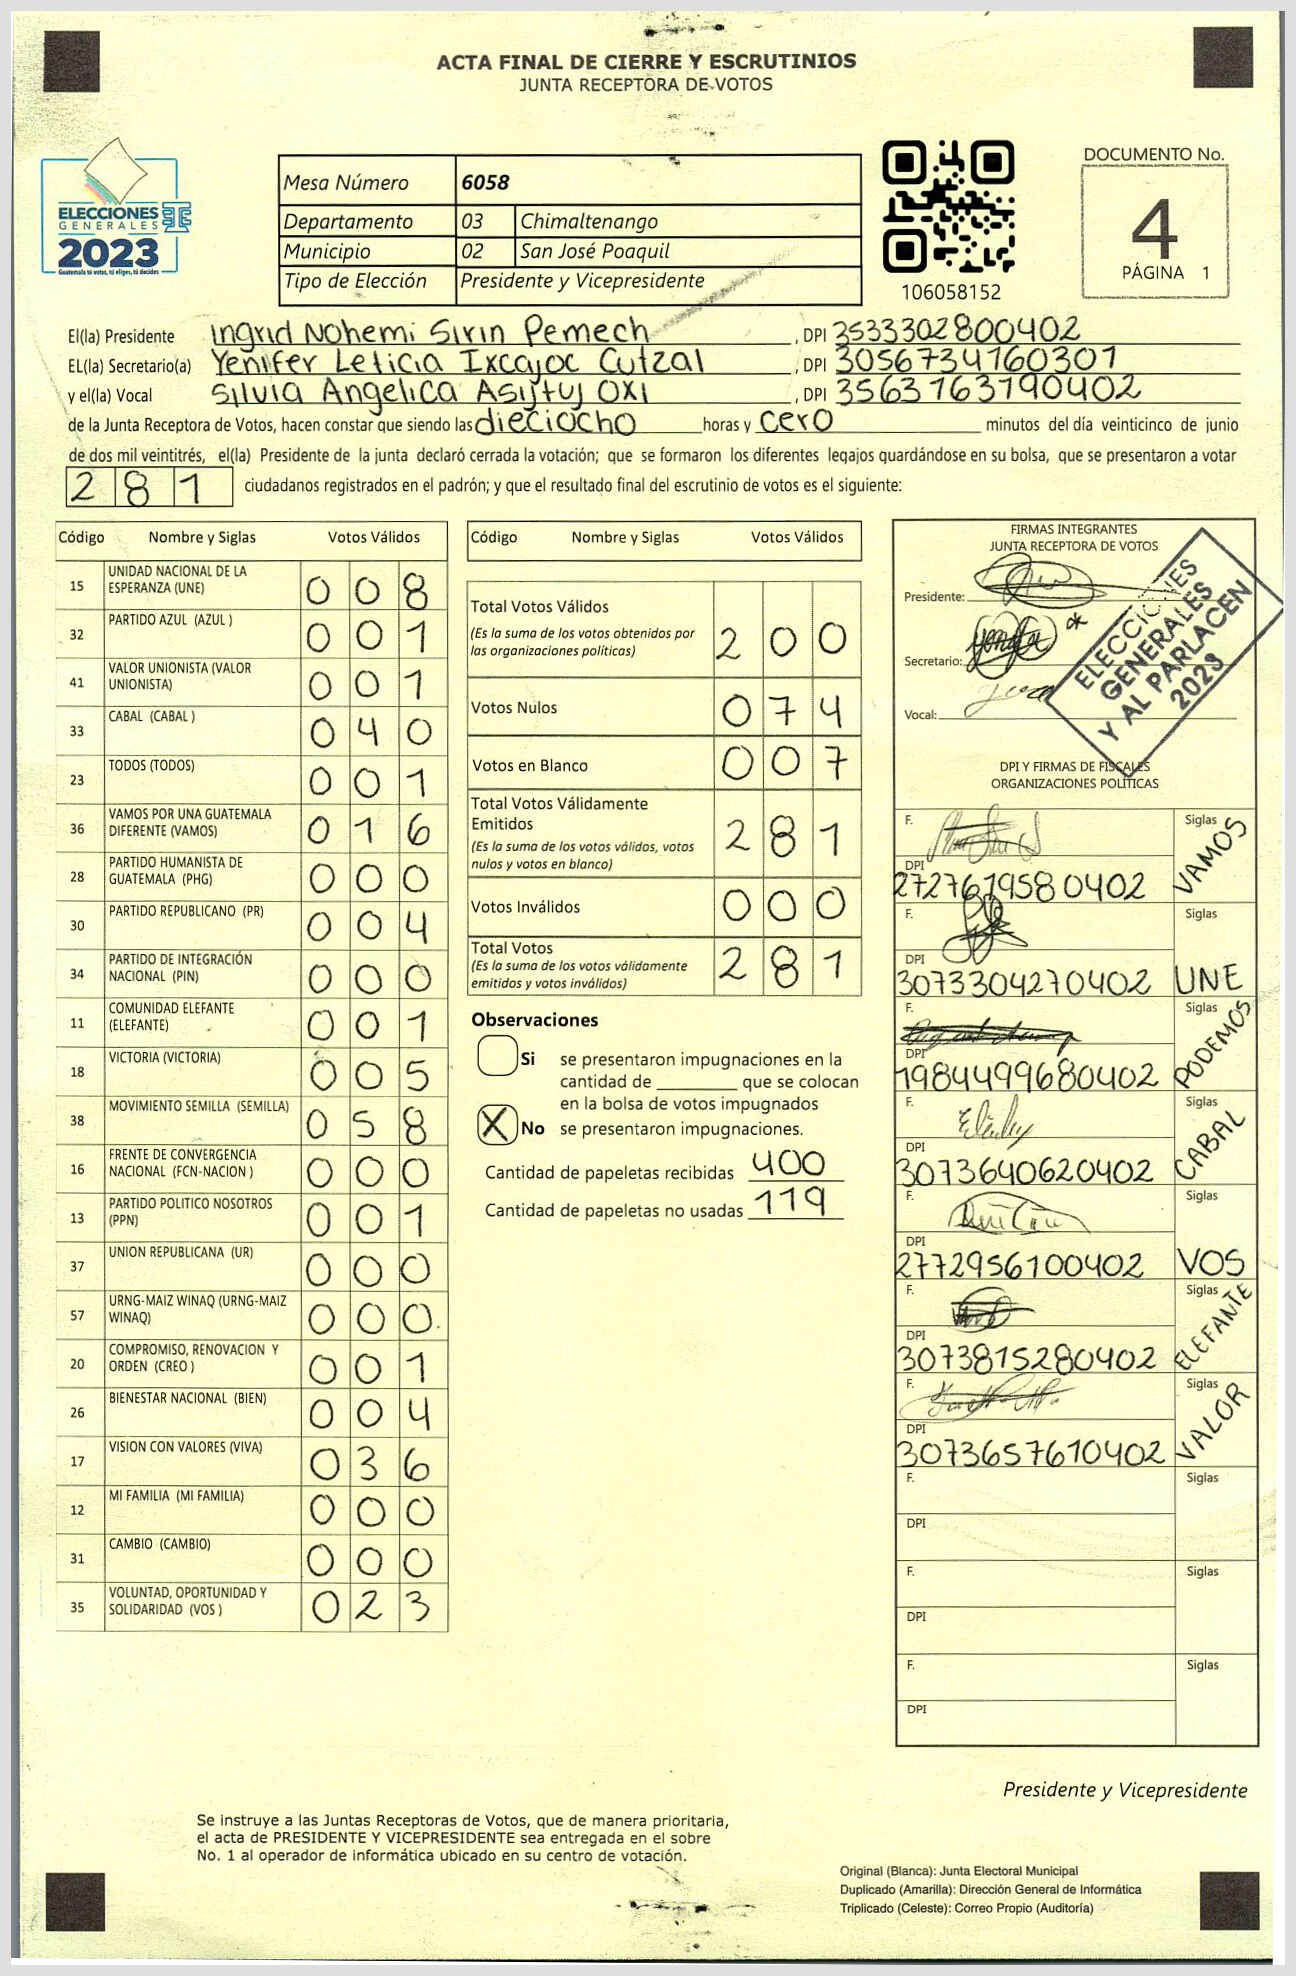 ACTA FINAL DE CIERRE Y ESCRUTINIOS
JUNTA RECEPTORA DE VOTOS
ELECCIONES
GENERALES
2023
Guatemala tú votas, tú eliges, tú decides
Mesa Número 6058
Departamento 03 Chimaltenango
Municipio 02 San José Poaquil
Tipo de Elección Presidente y Vicepresidente
106058152
DOCUMENTO No.
4
PÁGINA 1
El(la) Presidente Ingrid Nohemi Sirin Pemech, DPI 3533302800402
EL(la) Secretario(a) Yenifer Leticia Ixcajoc Cutzal, DPI 3056734160301
y el(la) Vocal Silvia Angelica Asijtuj OXI, DPI 3563763190402
de la Junta Receptora de Votos, hacen constar que siendo las dieciocho horas y cero minutos del día veinticinco de junio
de dos mil veintitrés, el(la) Presidente de la junta declaró cerrada la votación; que se formaron los diferentes legajos quardándose en su bolsa, que se presentaron a votar
281 ciudadanos registrados en el padrón; y que el resultado final del escrutinio de votos es el siguiente:
Código Nombre y Siglas Votos Válidos
15 UNIDAD NACIONAL DE LA ESPERANZA (UNE) 008
32 PARTIDO AZUL (AZUL ) 001
41 VALOR UNIONISTA (VALOR UNIONISTA) 001
33 CABAL (CABAL ) 040
23 TODOS (TODOS) 001
36 VAMOS POR UNA GUATEMALA DIFERENTE (VAMOS) 016
28 PARTIDO HUMANISTA DE GUATEMALA (PHG) 000
30 PARTIDO REPUBLICANO (PR) 004
34 PARTIDO DE INTEGRACIÓN NACIONAL (PIN) 000
11 COMUNIDAD ELEFANTE (ELEFANTE) 001
18 VICTORIA (VICTORIA) 005
38 MOVIMIENTO SEMILLA (SEMILLA) 058
16 FRENTE DE CONVERGENCIA NACIONAL (FCN-NACION ) 000
13 PARTIDO POLITICO NOSOTROS (PPN) 001
37 UNION REPUBLICANA (UR) 000
57 URNG-MAIZ WINAQ (URNG-MAIZ WINAQ) 000
20 COMPROMISO, RENOVACION Y ORDEN (CREO ) 001
26 BIENESTAR NACIONAL (BIEN) 004
17 VISION CON VALORES (VIVA) 036
12 MI FAMILIA (MI FAMILIA) 000
31 CAMBIO (CAMBIO) 000
35 VOLUNTAD, OPORTUNIDAD Y SOLIDARIDAD (VOS ) 023
Código Nombre y Siglas Votos Válidos
Total Votos Válidos 200
(Es la suma de los votos obtenidos por
las organizaciones políticas)
Votos Nulos 074
Votos en Blanco 007
Total Votos Válidamente
Emitidos 281
(Es la suma de los votos válidos, votos
nulos y votos en blanco)
Votos Inválidos 000
Total Votos 281
(Es la suma de los votos válidamente
emitidos y votos inválidos)
Observaciones
Si se presentaron impugnaciones en la
cantidad de ________ que se colocan
en la bolsa de votos impugnados
X No se presentaron impugnaciones.
Cantidad de papeletas recibidas 400
Cantidad de papeletas no usadas 119
FIRMAS INTEGRANTES
JUNTA RECEPTORA DE VOTOS
Presidente:
Secretario:
Vocal:
ELECCIONES
GENERALES
Y AL PARLACEN
2023
DPI Y FIRMAS DE FISCALES
ORGANIZACIONES POLÍTICAS
F. Siglas
DPI 2727619580402 VAMOS
F. Siglas
DPI 3073304270402 UNE
F. Siglas
DPI 1984499680402 PODEMOS
F. Siglas
DPI 3073640620402 CABAL
F. Siglas
DPI 2772956100402 VOS
F. Siglas
DPI 3073815280402 ELEFANTE
F. Siglas
DPI 3073657610402 VALOR
F. Siglas
DPI
F. Siglas
DPI
F. Siglas
DPI
Presidente y Vicepresidente
Se instruye a las Juntas Receptoras de Votos, que de manera prioritaria,
el acta de PRESIDENTE Y VICEPRESIDENTE sea entregada en el sobre
No. 1 al operador de informática ubicado en su centro de votación.
Original (Blanca): Junta Electoral Municipal
Duplicado (Amarilla): Dirección General de Informática
Triplicado (Celeste): Correo Propio (Auditoría)